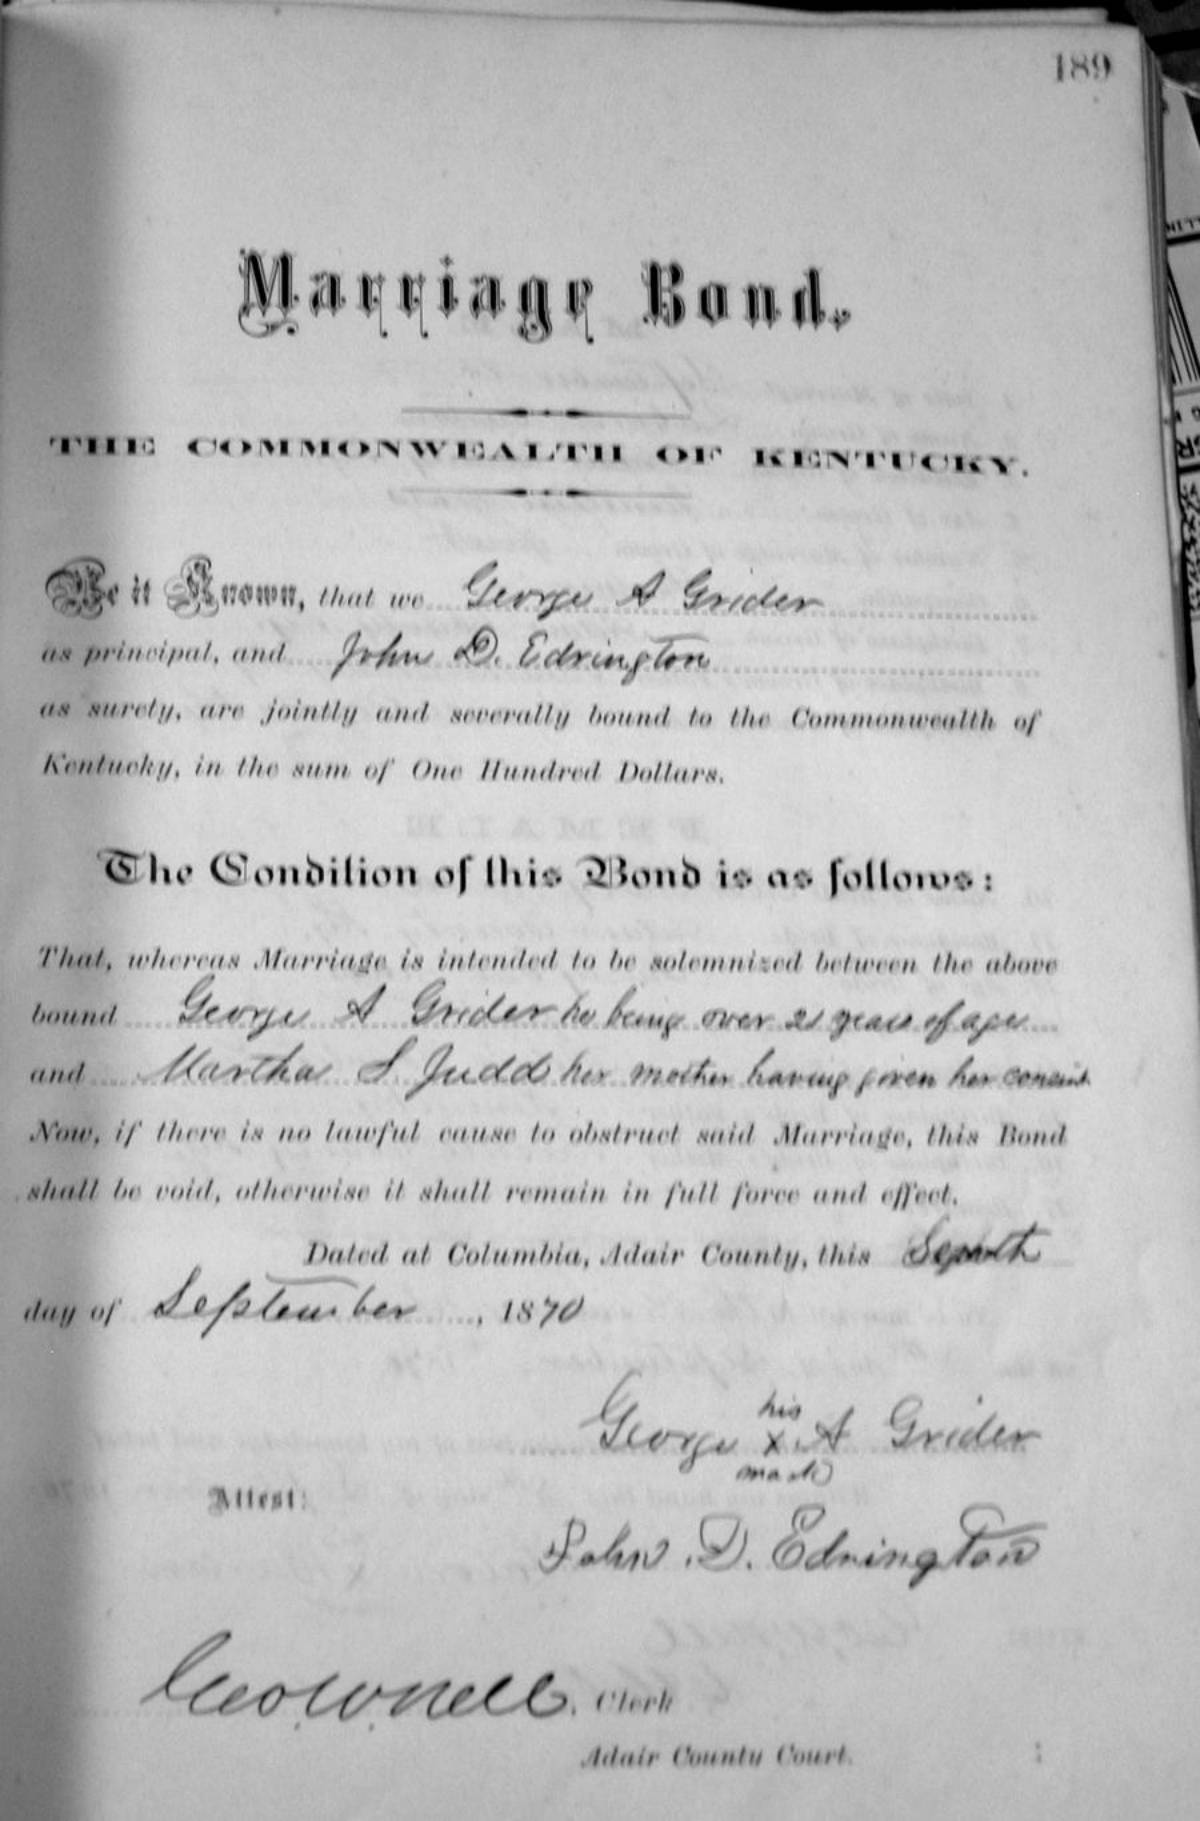 189
Marriage Bond.
THE COMMONWEALTH OF KENTUCKY.
Be it Known, that we George A Grider
as principal, and John D. Edrington
as surety, are jointly and severally bound to the Commonwealth of
Kentucky, in the sum of One Hundred Dollars.
The Condition of this Bond is as follows:
That, whereas Marriage is intended to be solemnized between the above
bound George A Grider he being over 21 years of age
and Martha S Judd her mother having given her consent.
Now, if there is no lawful cause to obstruct said Marriage, this Bond
shall be void, otherwise it shall remain in full force and effect.
Dated at Columbia, Adair County, this
day of September, 1870
his
George X A Grider
mark
Attest:
John D. Edrington
Geo. W. Nell. Clerk
Adair County Court.